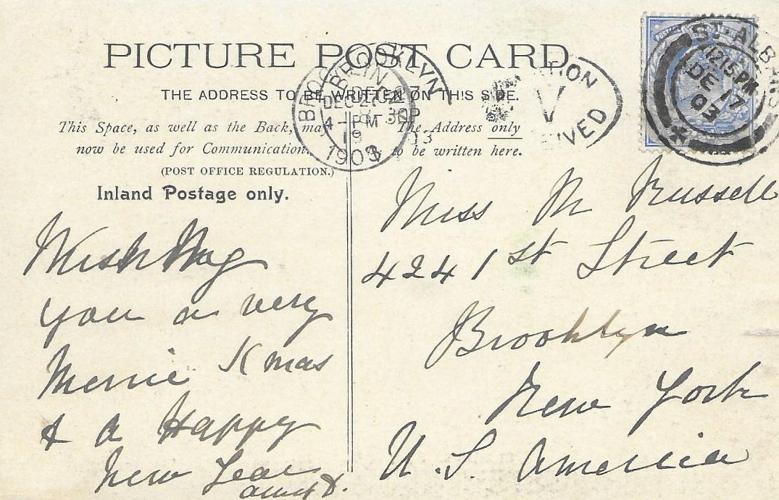 PICTURE POST CARD.
THE ADDRESS TO BE WRITTEN ON THIS SIDE.
This Space, as well as the Back, may
now be used for Communication.
(POST OFFICE REGULATION.)
Inland Postage only.
The Address only
to be written here.
BROOKLYN
DEC 27
4-PM
1903
ST. ALBANS
12.15 PM
DE 17
03
Wishing
you a very
Merrie Xmas
& a Happy
New Year
Miss M Russell
424 1st Street
Brooklyn
New York
U. S. America